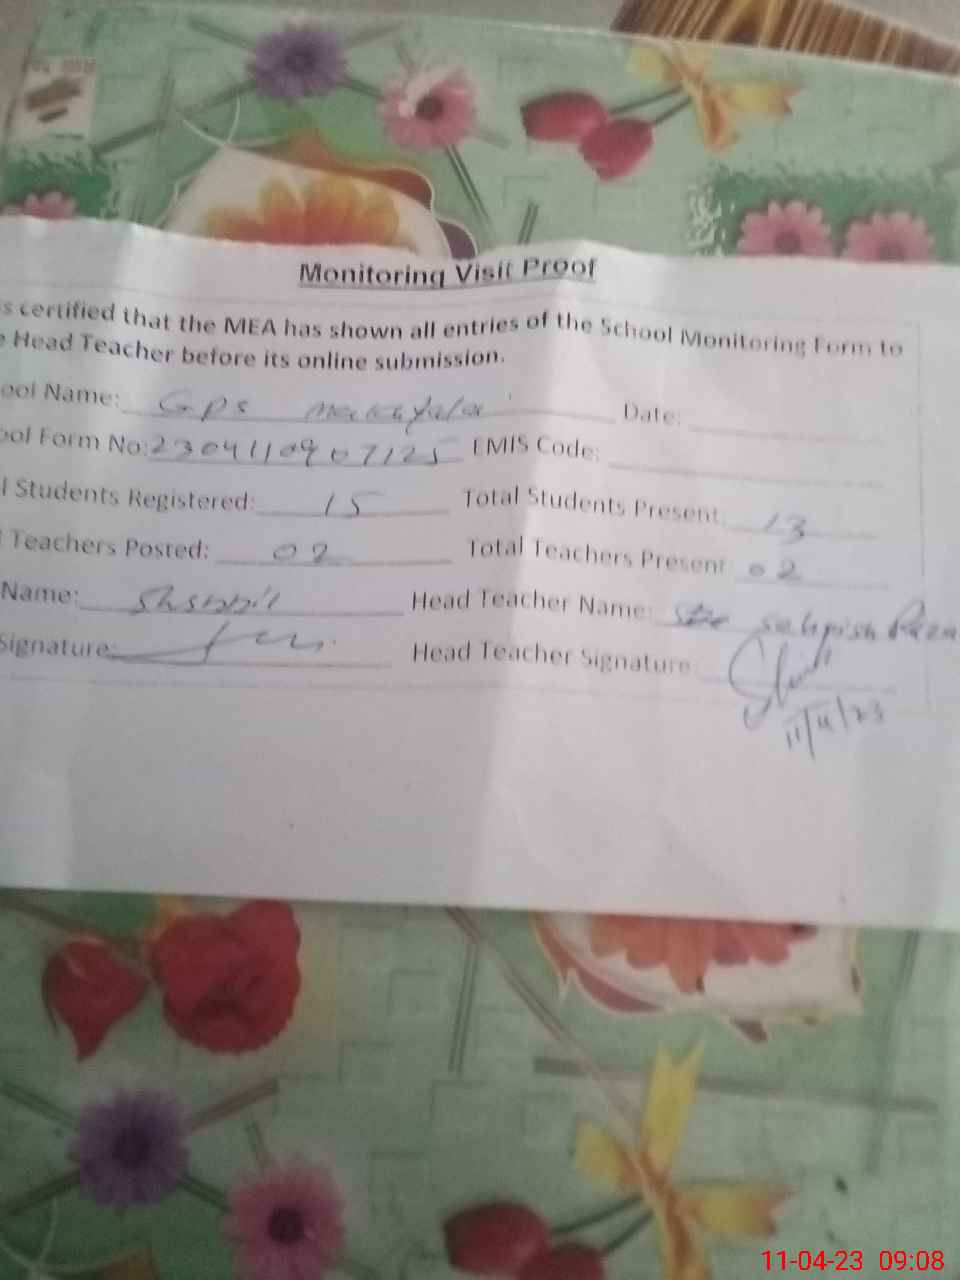 Monitoring Visit Proof
s certified that the MEA has shown all entries of the School Monitoring Form to
e Head Teacher before its online submission.
ool Name: GPS Date:
ool Form No: 2304110907125 EMIS Code:
l Students Registered: 15 Total Students Present: 13
l Teachers Posted: 02 Total Teachers Present 02
Name: Head Teacher Name: Raza
Signature: Head Teacher Signature
11/4/23
11-04-23 09:08